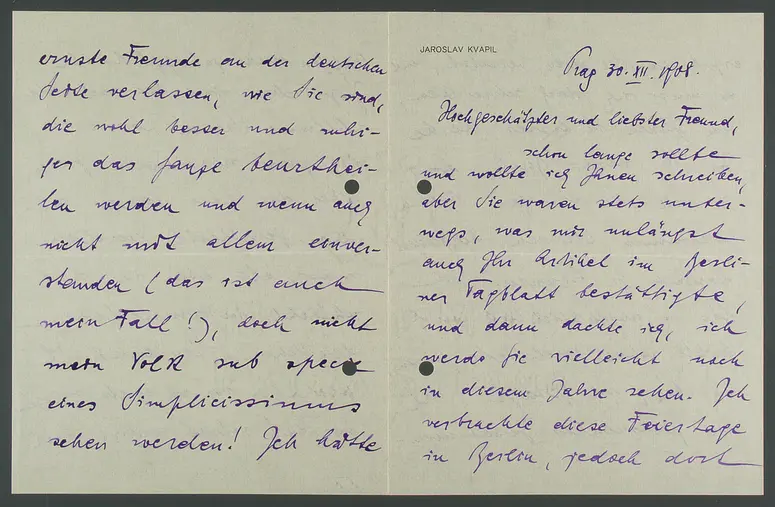 JAROSLAV KVAPIL
Prag 30. XII. 1908.
Hochgeschätzter und liebster Freund,
schon lange sollte
und wollte ich Ihnen schreiben,
aber Sie waren stets unter-
wegs, was mir unlängst
auch Ihr Artikel im Berli-
ner Tagblatt bestättigte,
und dann dachte ich, ich
werde Sie vielleicht noch
in diesem Jahre sehen. Ich
verbrachte diese Feiertage
in Berlin, jedoch dort
ernste Freunde an der deutschen
Seite verlassen, wie Sie sind,
die wohl besser und ruhi-
ger das ganze beurthei-
len werden und wenn auch
nicht mit allem einver-
standen (das ist auch
mein Fall!), doch nicht
mein Volk sub specie
eines Simplicissimus
sehen werden! Ich hätte